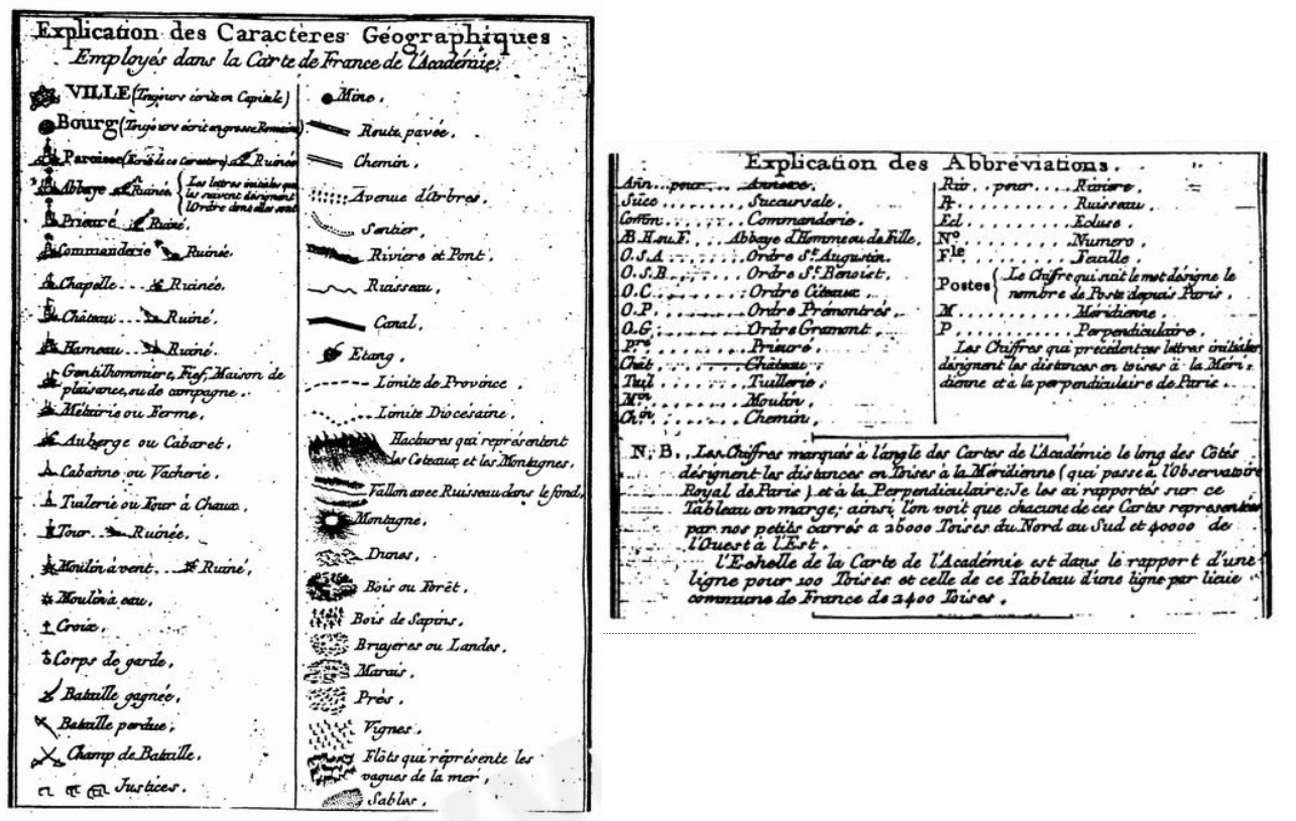 Explication des Caractères Géographiques
Employés dans la Carte de France de l'Académie.
VILLE (Toujours écrite en Capitale)
Bourg (Toujours écrit en grosse Romaine)
Paroisse (Ecrite de ce Caractere) Ruinée
Abbaye Ruinée. { Les lettres initiales qui
les suivent désignent
l'Ordre dont elles sont
Prieuré Ruiné.
Commanderie Ruinée.
Chapelle... Ruinée.
Château.... Ruiné.
Hameau... Ruiné.
Gentilhommiere, Fief, Maison de
plaisance, ou de campagne.
Métairie ou Ferme,
Auberge ou Cabaret,
Cabanne ou Vacherie,
Tuilerie ou Four à Chaux,
Tour... Ruinée.
Moulin à vent.. Ruiné,
Moulin à eau,
Croix,
Corps de garde,
Bataille gagnée,
Bataille perdue,
Champ de Bataille,
Justices.
Mine,
Route pavée,
Chemin,
Avenue d'Arbres,
Sentier,
Riviere et Pont,
Ruisseau,
Canal,
Etang,
Limite de Province,
Limite Diocesaine,
Hachures qui représentent
les Coteaux et les Montagnes,
Vallon avec Ruisseau dans le fond,
Montagne,
Dunes,
Bois ou Forêt,
Bois de Sapins,
Bruyeres ou Landes,
Marais,
Prés,
Vignes,
Flôts qui réprésente les
vagues de la mer,
Sables,
Explication des Abbréviations.
Ann... pour... Annexe.
Succ........ Succursale.
Comm........ Commanderie.
AB.H.ou F.... Abbaye d'Homme ou de Fille.
O.S.A........ Ordre St. Augustin.
O.S.B........ Ordre St. Benoist.
O.C........ Ordre Citeaux.
O.P........ Ordre Prémontrés.
O.G........ Ordre Gramont.
Pré........ Prieuré.
Chât........ Château.
Tuil........ Tuillerie.
Min........ Moulin.
Chin........ Chemin.
Riv... pour.... Riviere.
R........ Ruisseau.
Ecl........ Ecluse.
No........ Numero.
Fle........ Feuille.
Postes { Le Chiffre qui suit le mot désigne le
nombre de Poste depuis Paris.
M........ Méridienne.
P........ Perpendiculaire.
Les Chiffres qui précédent ces lettres initiales
désignent les distances en toises à la Méri-
dienne et à la perpendiculaire de Paris.
N.B. Les Chiffres marqués à l'angle des Cartes de l'Académie le long des Côtés
désignent les distances en Toises à la Méridienne (qui passe à l'Observatoire
Royal de Paris) et à la Perpendiculaire: Je les ai rapportés sur ce
Tableau en marge; ainsi l'on voit que chacune de ces Cartes representées
par nos petits carrés a 25000 Toises du Nord au Sud et 40000 de
l'Ouest à l'Est.
l'Echelle de la Carte de l'Académie est dans le rapport d'une
ligne pour 100 Toises et celle de ce Tableau d'une ligne par lieue
commune de France de 2400 Toises.